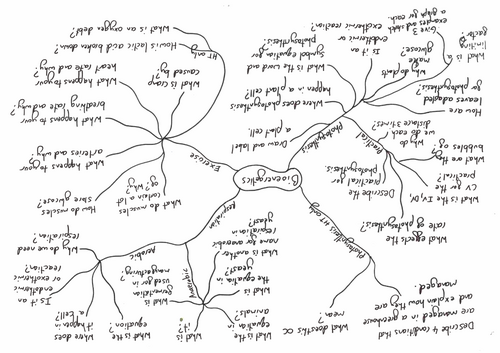 Describe 4 conditions that
are managed in a greenhouse
and explain how they are
managed.
What does this ∝
mean?
What is the
equation in
animals?
What is
it?
What is the
equation?
Where does
it happen in
a cell?
What is
the equation in
yeast?
What is
fermentation
used for in
manufacturing?
Is it an
endothermic
or exothermic
reaction?
What is another
name for anaerobic
respiration in
yeast?
Why do we need
respiration?
Anaerobic
Aerobic
Respiration
Photosynthesis HT only
What affects the
rate of photosynthesis?
What is the IV, DV,
CV for the
practical?
Describe the
practical for
photosynthesis.
What are the
bubbles
of?
Why do
we do each
distance 3 times?
Practical
Bioenergetics
Photosynthesis
Exercise
How are
leaves adapted
for photosynthesis?
Draw and label
a plant cell.
Where does photosynthesis
happen in a plant cell?
What is the word and
symbol equation for
photosynthesis?
Is it an
endothermic or
exothermic reaction?
Why do plants
make
glucose?
What is a
limiting
factor?
Give 3
examples and sketch
a graph for each.
What do muscles
contain a lot
of? Why?
How do muscles
store glucose?
What happens to your
arteries and why?
What happens to your
breathing rate and why?
What happens to your
heart rate and why?
What is cramp
caused by?
HT only
How is lactic acid broken down?
What is an oxygen debt?